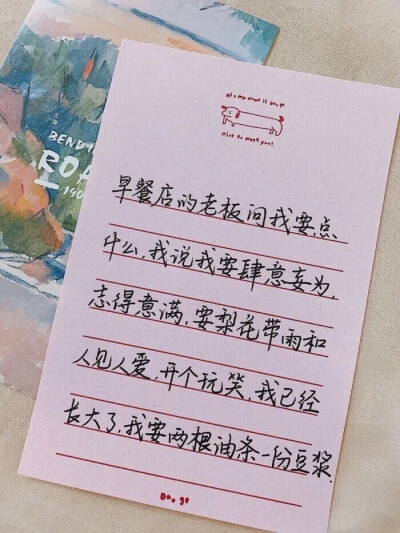 Hi ~ my name is Do. ge
Nice to meet you!
早餐店的老板问我要点
什么,我说我要肆意妄为,
志得意满,要梨花带雨和
人见人爱,开个玩笑,我已经
长大了,我要两根油条一份豆浆.
Do. ge
BEND
ROA
190